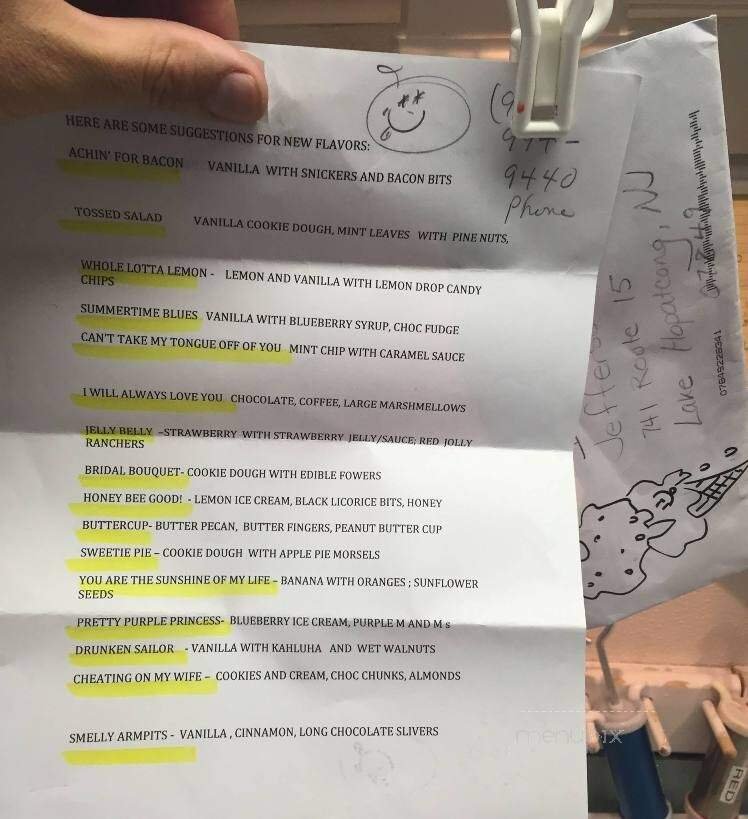 HERE ARE SOME SUGGESTIONS FOR NEW FLAVORS:
ACHIN' FOR BACON VANILLA WITH SNICKERS AND BACON BITS
TOSSED SALAD VANILLA COOKIE DOUGH, MINT LEAVES WITH PINE NUTS,
WHOLE LOTTA LEMON - LEMON AND VANILLA WITH LEMON DROP CANDY
CHIPS
SUMMERTIME BLUES VANILLA WITH BLUEBERRY SYRUP, CHOC FUDGE
CAN'T TAKE MY TONGUE OFF OF YOU MINT CHIP WITH CARAMEL SAUCE
I WILL ALWAYS LOVE YOU CHOCOLATE, COFFEE, LARGE MARSHMELLOWS
JELLY BELLY –STRAWBERRY WITH STRAWBERRY JELLY/SAUCE; RED JOLLY
RANCHERS
BRIDAL BOUQUET- COOKIE DOUGH WITH EDIBLE FOWERS
HONEY BEE GOOD! - LEMON ICE CREAM, BLACK LICORICE BITS, HONEY
BUTTERCUP- BUTTER PECAN, BUTTER FINGERS, PEANUT BUTTER CUP
SWEETIE PIE – COOKIE DOUGH WITH APPLE PIE MORSELS
YOU ARE THE SUNSHINE OF MY LIFE – BANANA WITH ORANGES ; SUNFLOWER
SEEDS
PRETTY PURPLE PRINCESS- BLUEBERRY ICE CREAM, PURPLE M AND M s
DRUNKEN SAILOR - VANILLA WITH KAHLUHA AND WET WALNUTS
CHEATING ON MY WIFE – COOKIES AND CREAM, CHOC CHUNKS, ALMONDS
SMELLY ARMPITS - VANILLA , CINNAMON, LONG CHOCOLATE SLIVERS
9440
Phone
741 Route 15
Lake Hopatcong, NJ
07849228341
RED
menupix